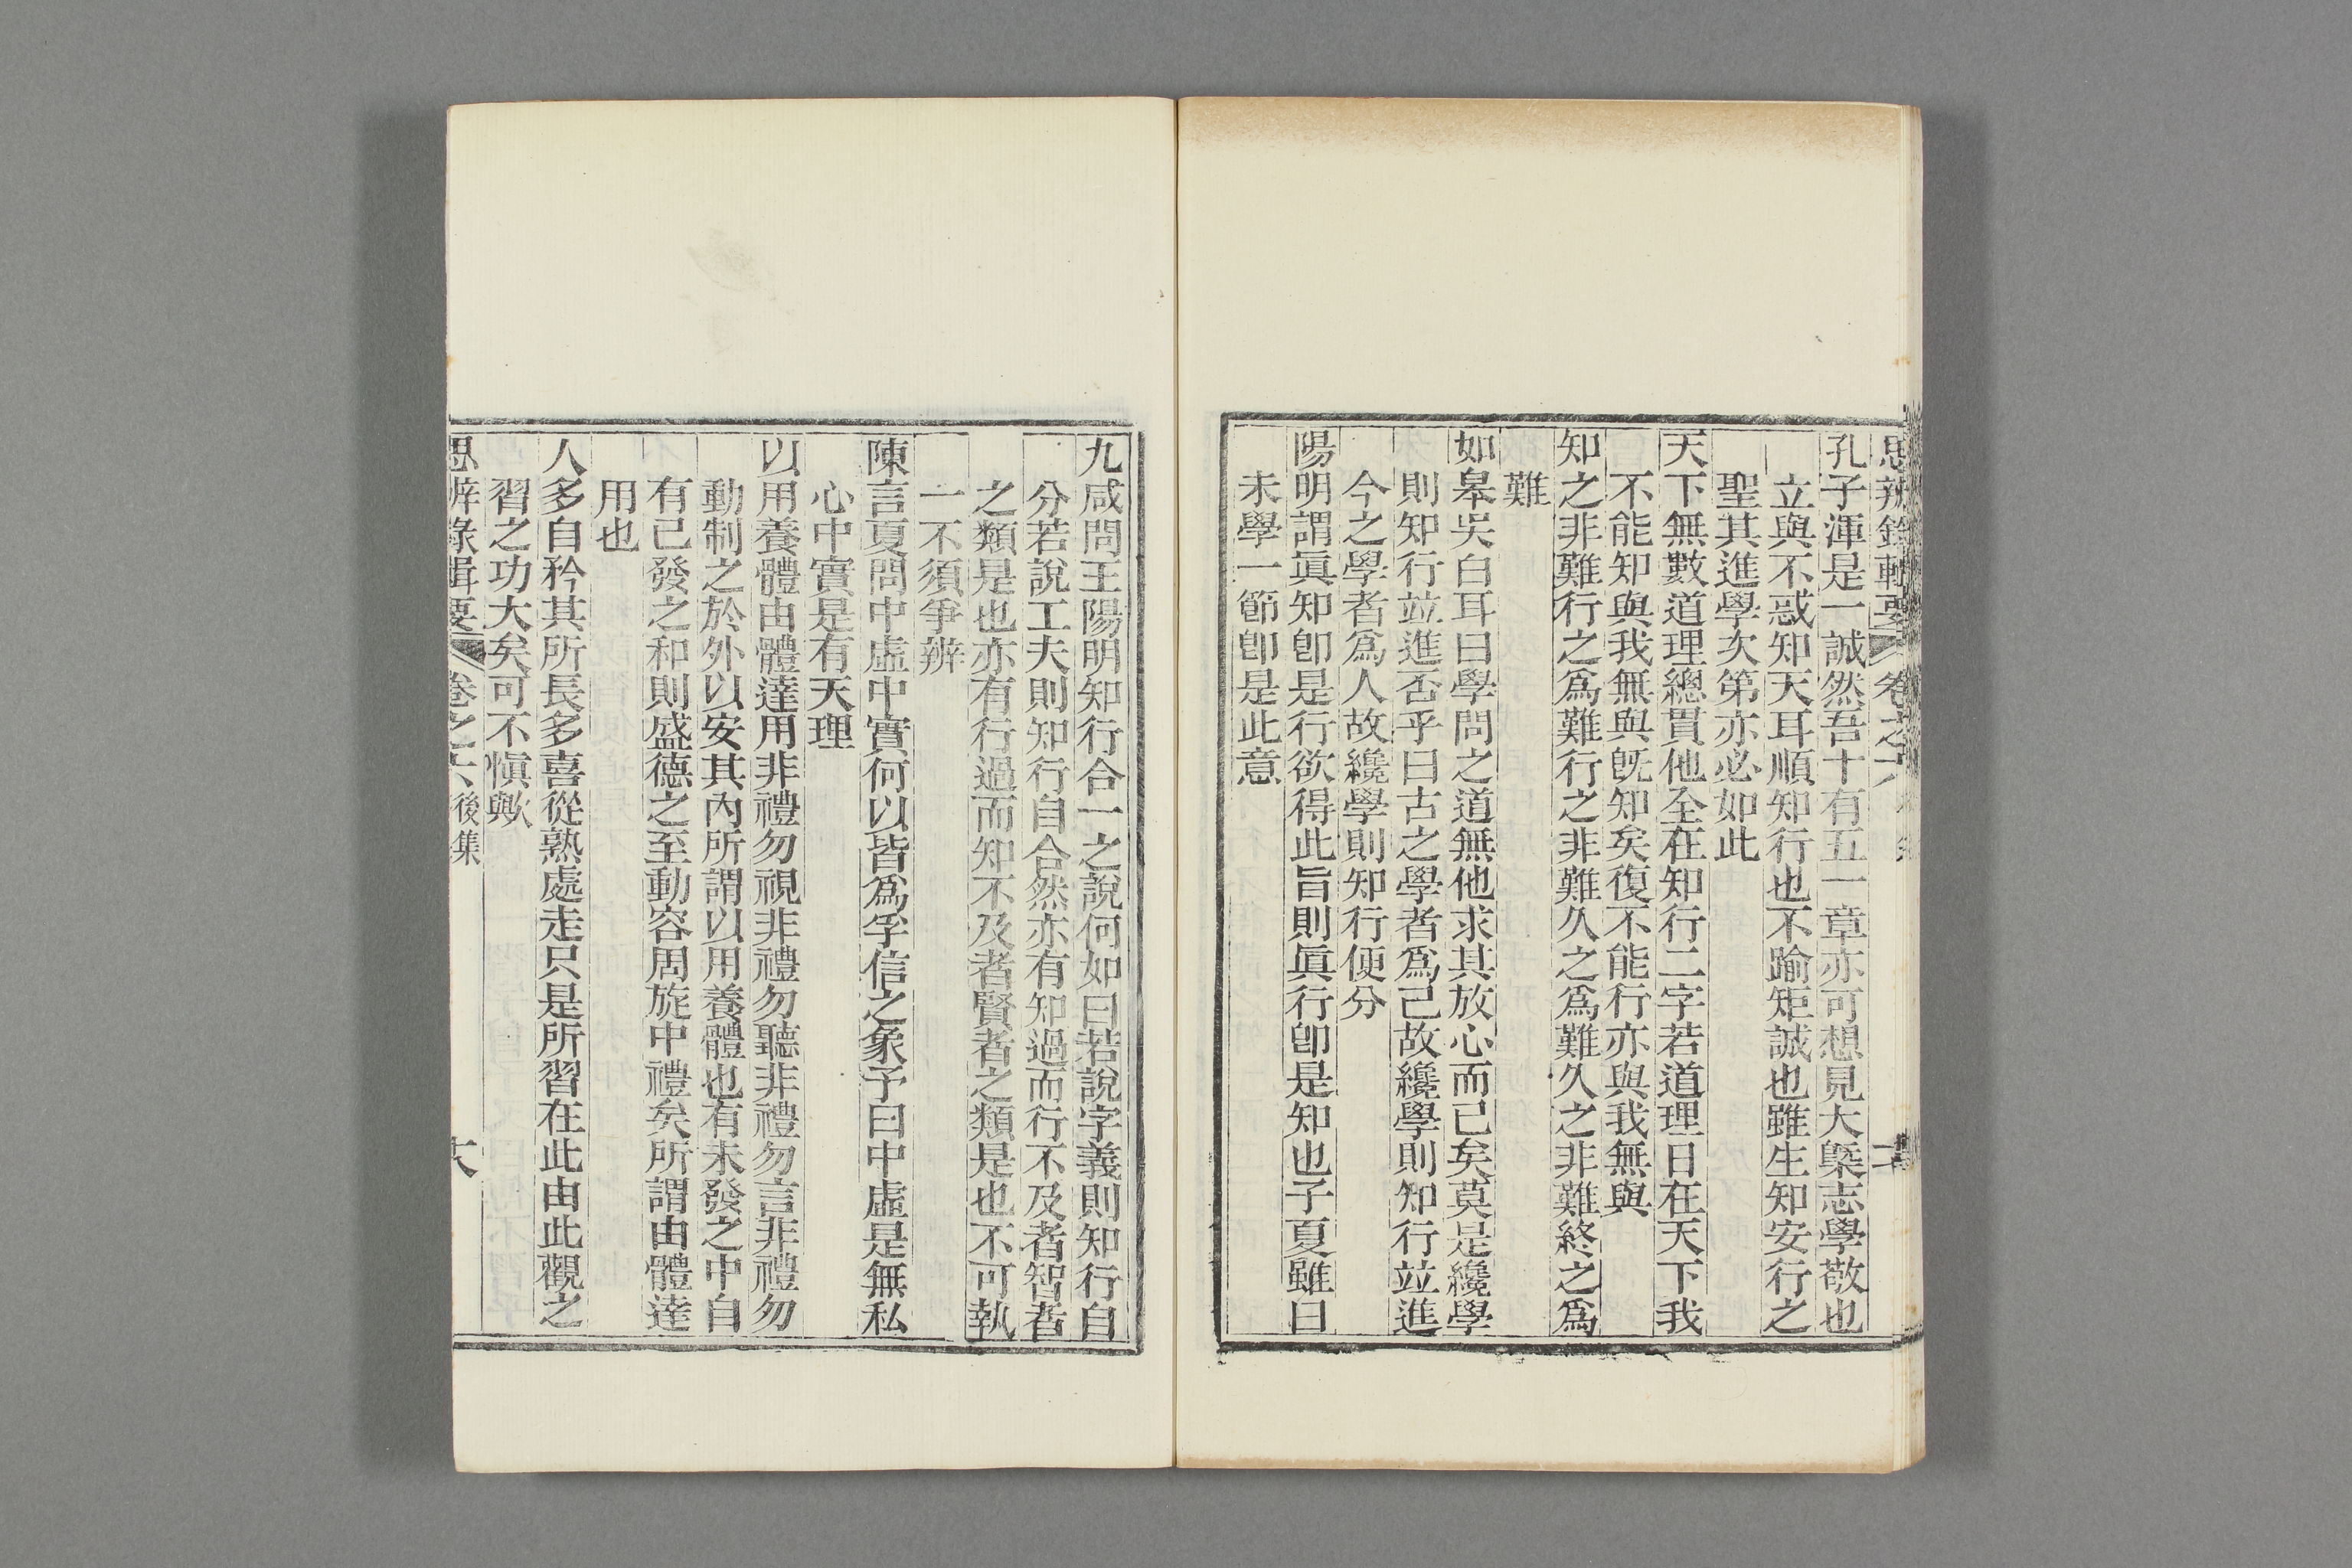 思辨錄輯要 卷之六
孔子渾是一誠然吾十有五一章亦可想見大槩志學敬也
立與不惑知天耳順知行也不踰矩誠也雖生知安行之
聖其進學次第亦必如此
天下無數道理總貫他全在知行二字若道理日在天下我
不能知與我無與旣知矣復不能行亦與我無與
知之非難行之爲難行之非難久之爲難久之非難終之爲
難
如皋吳白耳曰學問之道無他求其放心而已矣莫是纔學
則知行竝進否乎曰古之學者爲己故纔學則知行竝進
今之學者爲人故纔學則知行便分
陽明謂眞知卽是行欲得此旨則眞行卽是知也子夏雖曰
未學一節卽是此意
九咸問王陽明知行合一之說何如曰若說字義則知行自
分若說工夫則知行自合然亦有知過而行不及者智者
之類是也亦有行過而知不及者賢者之類是也不可執
一不須爭辨
陳言夏問中虛中實何以皆爲孚信之象予曰中虛是無私
心中實是有天理
以用養體由體達用非禮勿視非禮勿聽非禮勿言非禮勿
動制之於外以安其內所謂以用養體也有未發之中自
有已發之和則盛德之至動容周旋中禮矣所謂由體達
用也
人多自矜其所長多喜從熟處走只是所習在此由此觀之
習之功大矣可不愼歟
思辨錄輯要 卷之六 後集